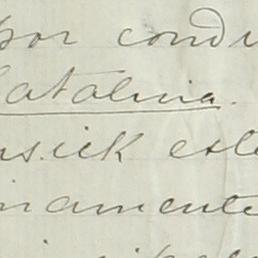 por condu
Catalina.
usick este
namente